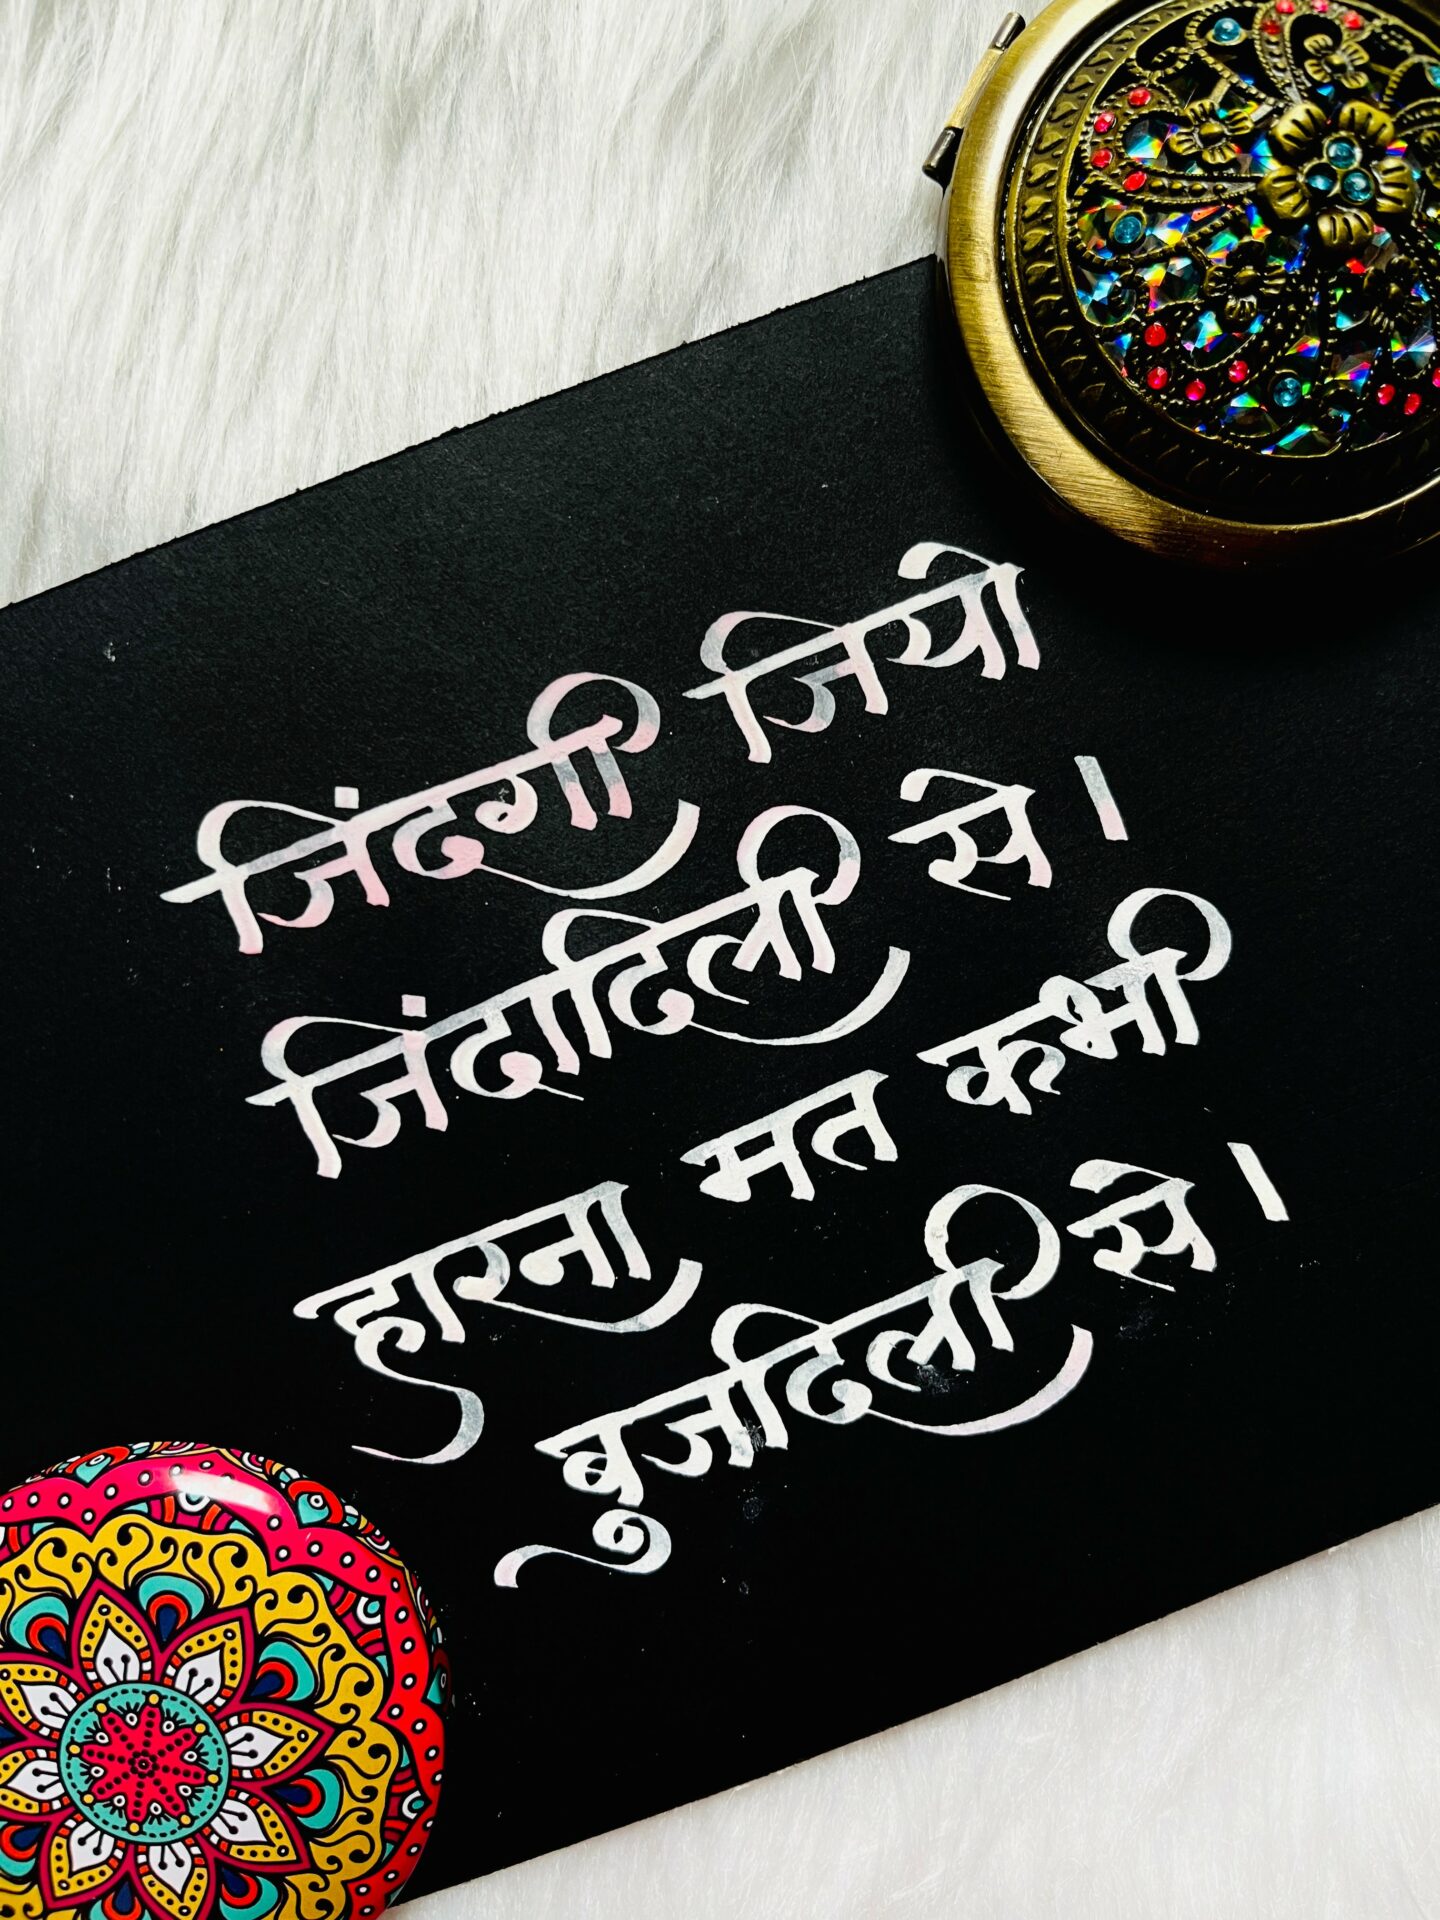 जिंदगी जियो
जिंदादिली से ।
हारना मत कभी
बुजदिली से ।